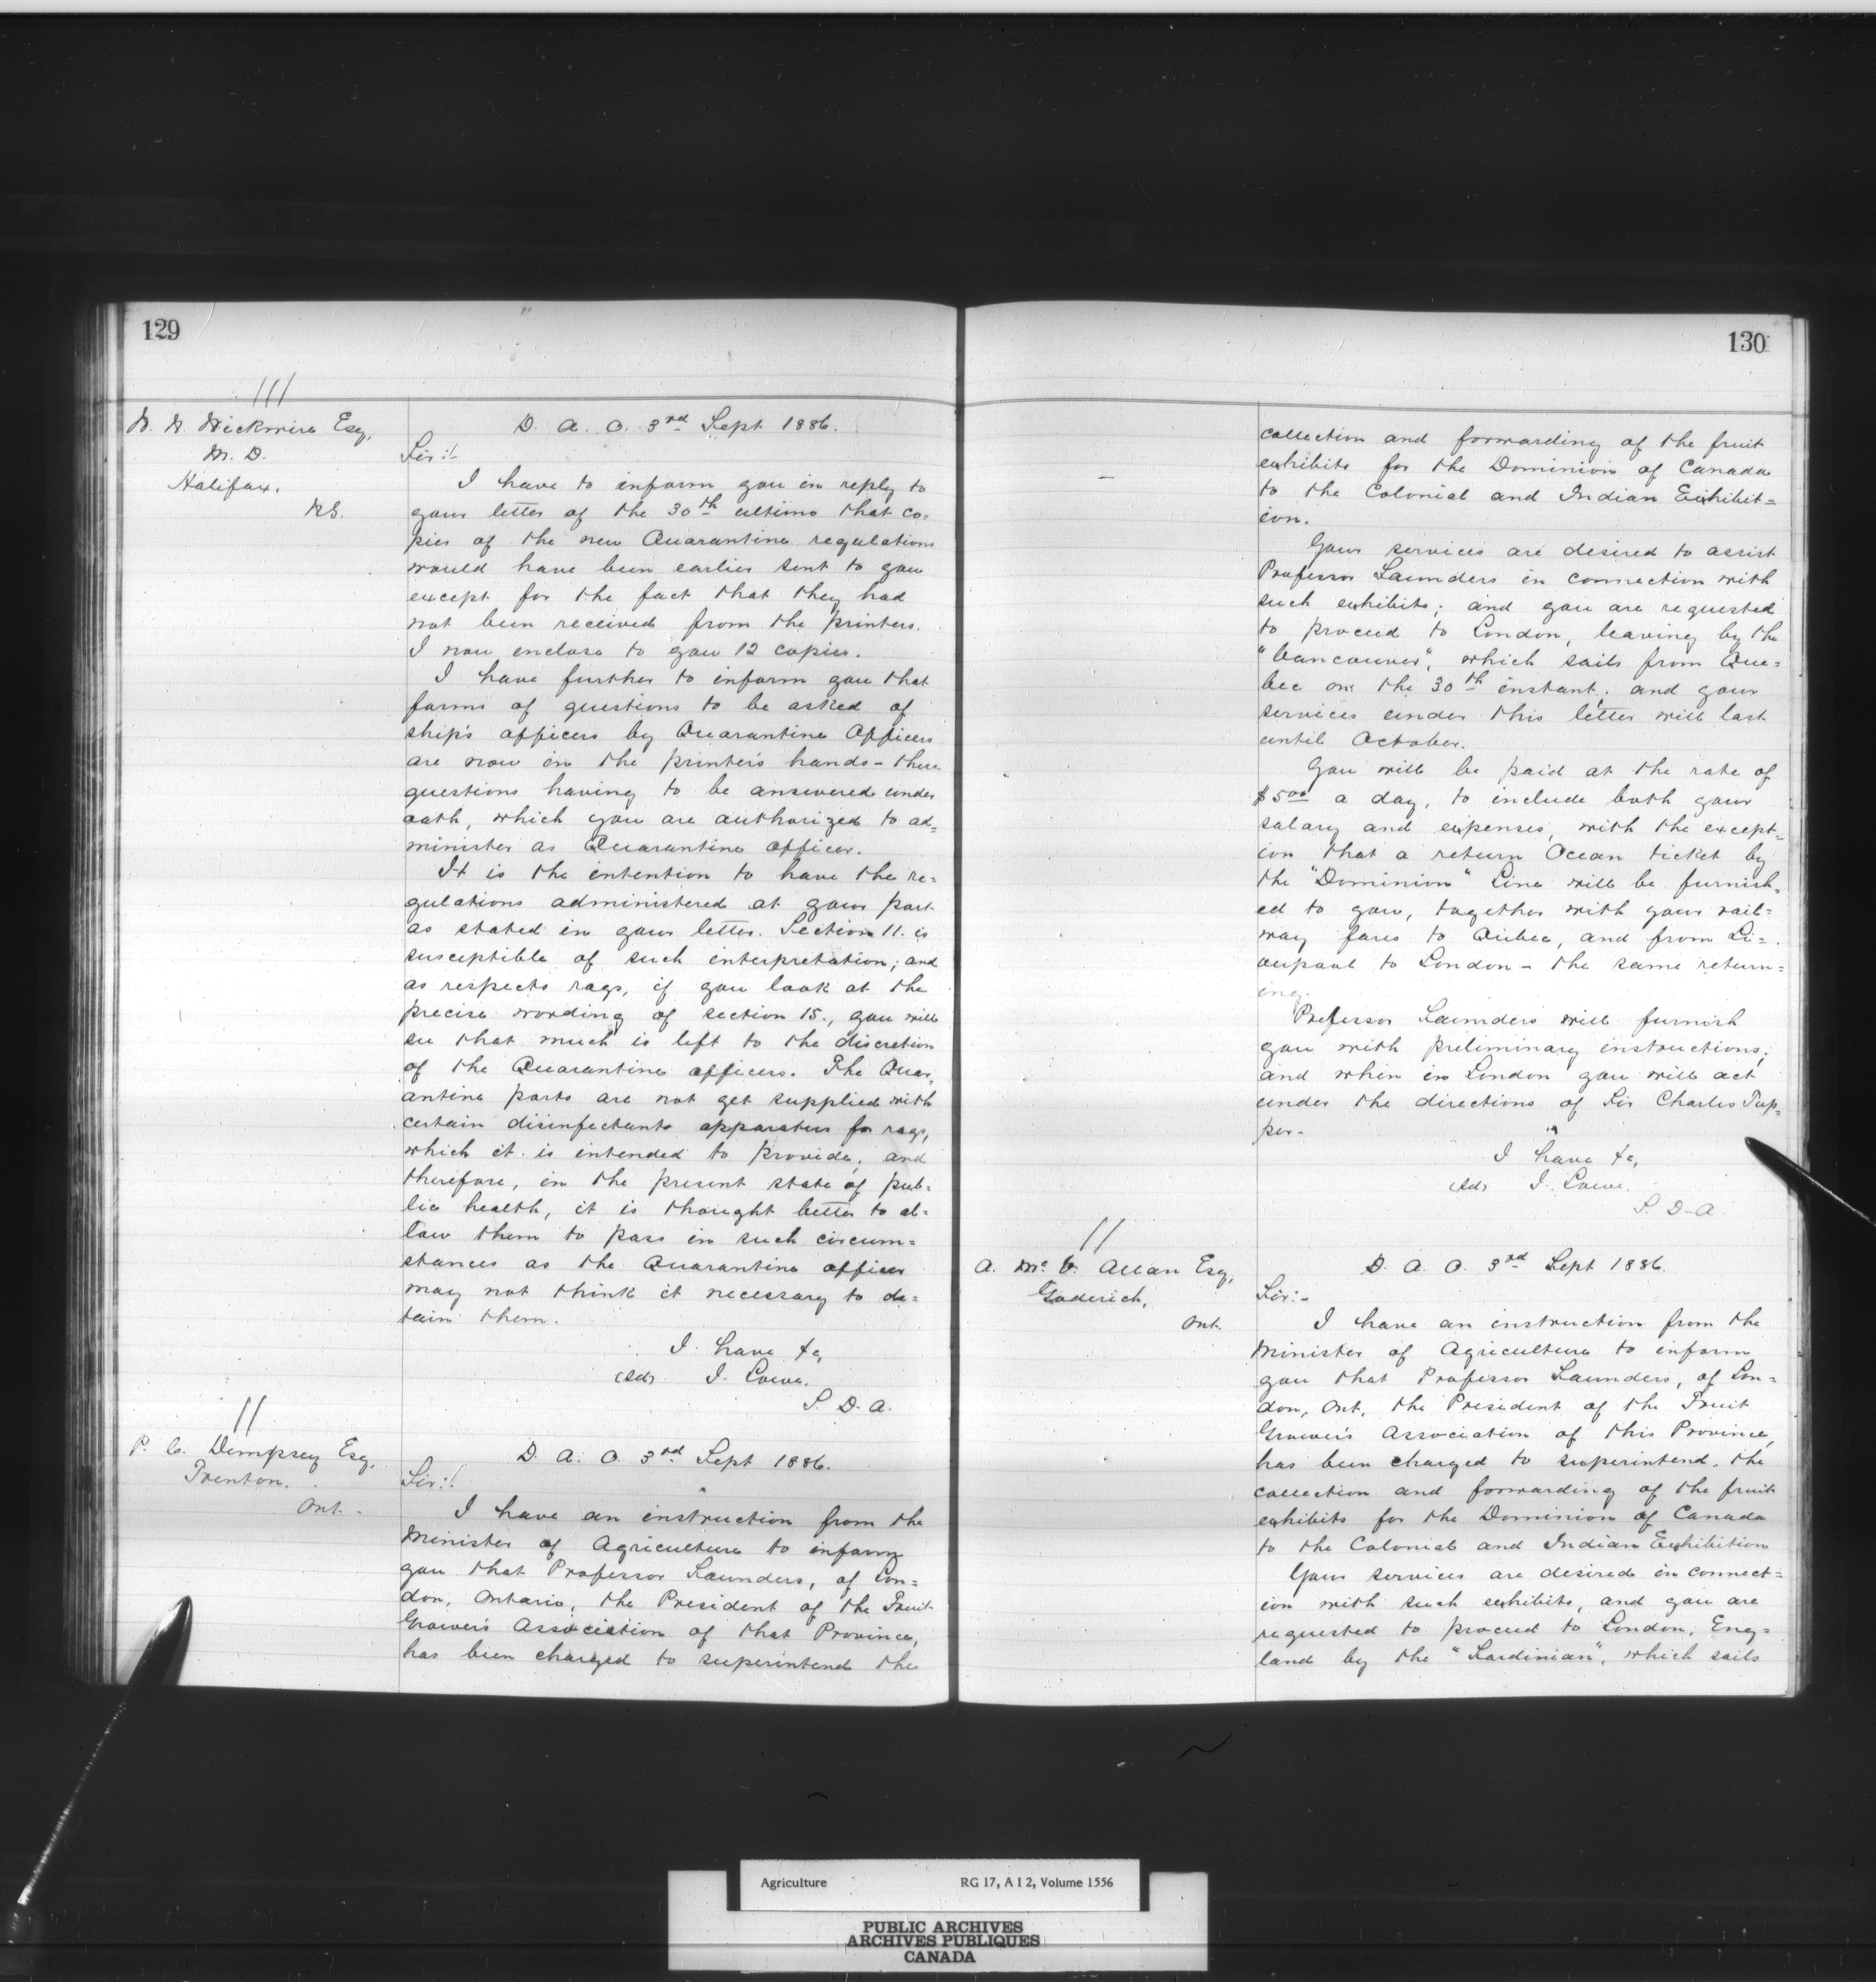 129
///
W. W. Wickwire Esq,
M. D.
Halifax,
N.S.
D. A. O. 3rd Sept 1886.
Sir:-
I have to inform you in reply to
your letter of the 30th ultimo that co=
pies of the new Quarantine regulations
would have been earlier sent to you
except for the fact that they had
not been received from the printers.
I now enclose to you 12 copies.
I have further to inform you that
forms of questions to be asked of
ship's officers by Quarantine Officers
are now in the printer's hands - these
questions having to be answered under
oath, which you are authorized to ad=
minister as Quarantine officer.
It is the intention to have the re=
gulations administered at your port
as stated in your letter. Section 11. is
susceptible of such interpretation; and
as respects rags, if you look at the
precise wording of section 15., you will
see that much is left to the discretion
of the Quarantine officers. The Quar=
antine ports are not yet supplied with
certain disinfectants apparatus for rags,
which it is intended to provide; and
therefore, in the present state of pub=
lic health, it is thought better to al=
low them to pass in such circum=
stances as the Quarantine officer
may not think it necessary to de=
tain them.
I have &c,
(sd) J. Lowe.
S. D. A.
//
P. C. Dempsey Esq,
Trenton,
Ont.
D. A. O. 3rd Sept 1886.
Sir:-
I have an instruction from the
Minister of Agriculture to inform
you that Professor Saunders, of Lon=
don, Ontario, the President of the Fruit
Grower's Association of that Province,
has been charged to superintend the
130
collection and forwarding of the fruit
exhibits for the Dominion of Canada
to the Colonial and Indian Exhibit=
ion.
Your services are desired to assist
Professor Saunders in connection with
such exhibits; and you are requested
to proceed to London, leaving by the
"Vancouver", which sails from Que=
bec on the 30th instant; and your
services under this letter will last
until October.
You will be paid at the rate of
$5.00 a day, to include both your
salary and expenses, with the except=
ion that a return Ocean ticket by
the "Dominion" Line will be furnish=
ed to you, together with your rail=
way fares to Quebec, and from Li=
verpool to London - the same return=
ing.
Professor Saunders will furnish
you with preliminary instructions;
and when in London you will act
under the directions of Sir Charles Tup=
per.
I have &c,
(sd) J. Lowe.
S. D. A.
//
A. McD. Allan Esq,
Goderich,
Ont.
D. A. O. 3rd Sept 1886.
Sir:-
I have an instruction from the
Minister of Agriculture to inform
you that Professor Saunders, of Lon=
don, Ont, the President of the Fruit
Grower's Association of this Province,
has been charged to superintend the
collection and forwarding of the fruit
exhibits for the Dominion of Canada
to the Colonial and Indian Exhibition
Your services are desired in connect=
ion with such exhibits, and you are
requested to proceed to London, Eng=
land by the "Sardinian", which sails
Agriculture RG 17, A I 2, Volume 1556
PUBLIC ARCHIVES
ARCHIVES PUBLIQUES
CANADA